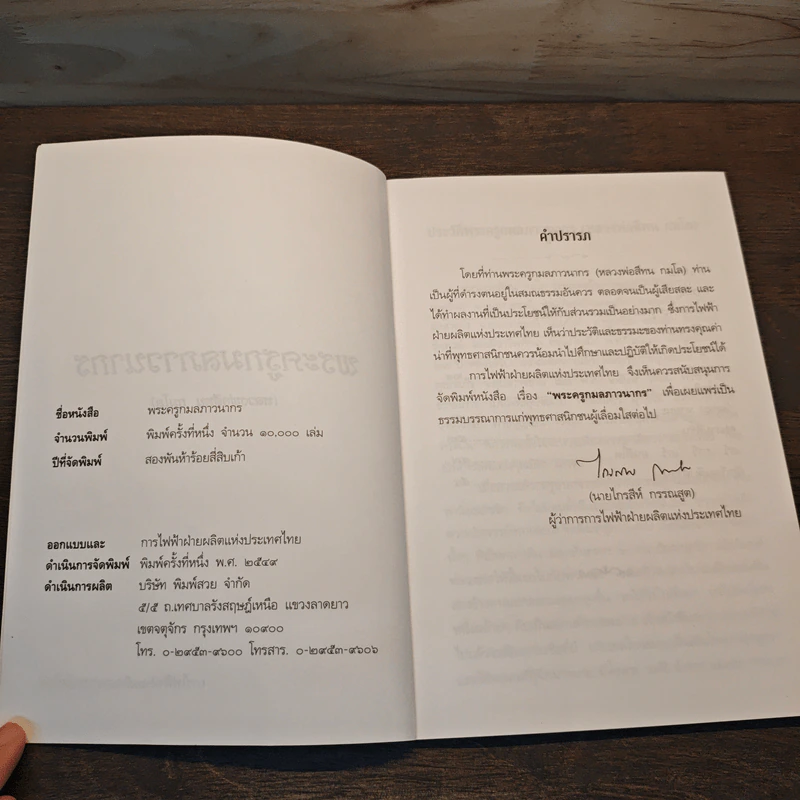 ชื่อหนังสือ พระครูกมลภาวนากร
จำนวนพิมพ์ พิมพ์ครั้งที่หนึ่ง จำนวน ๑๐,๐๐๐ เล่ม
ปีที่จัดพิมพ์ สองพันห้าร้อยสี่สิบเก้า
ออกแบบและ การไฟฟ้าฝ่ายผลิตแห่งประเทศไทย
ดำเนินการจัดพิมพ์ พิมพ์ครั้งที่หนึ่ง พ.ศ. ๒๕๔๙
ดำเนินการผลิต บริษัท พิมพ์สวย จำกัด
๕/๕ ถ.เทศบาลรังสฤษฎ์เหนือ แขวงลาดยาว
เขตจตุจักร กรุงเทพฯ ๑๐๙๐๐
โทร. ๐-๒๙๕๓-๙๖๐๐ โทรสาร. ๐-๒๙๕๓-๙๖๐๖
คำปรารภ
โดยที่ท่านพระครูกมลภาวนากร (หลวงพ่อสีทน กมโล) ท่าน
เป็นผู้ที่ดำรงตนอยู่ในสมณธรรมอันควร ตลอดจนเป็นผู้เสียสละ และ
ได้ทำผลงานที่เป็นประโยชน์ให้กับส่วนรวมเป็นอย่างมาก ซึ่งการไฟฟ้า
ฝ่ายผลิตแห่งประเทศไทย เห็นว่าประวัติและธรรมะของท่านทรงคุณค่า
น่าที่พุทธศาสนิกชนควรน้อมนำไปศึกษาและปฏิบัติให้เกิดประโยชน์ได้
การไฟฟ้าฝ่ายผลิตแห่งประเทศไทย จึงเห็นควรสนับสนุนการ
จัดพิมพ์หนังสือ เรื่อง "พระครูกมลภาวนากร" เพื่อเผยแพร่เป็น
ธรรมบรรณาการแก่พุทธศาสนิกชนผู้เลื่อมใสต่อไป
(นายไกรสีห์ กรรณสูต)
ผู้ว่าการการไฟฟ้าฝ่ายผลิตแห่งประเทศไทย